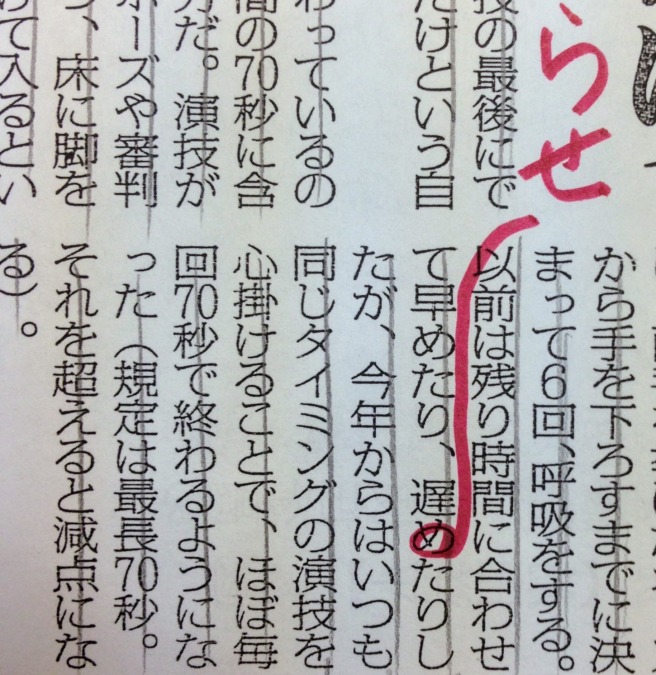 らせ
の最後にで
けという自
っているの
の70秒に含
だ。演技が
ーズや審判
、床に脚を
て入るとい
から手を下ろすまでに決
まって6回、呼吸をする。
以前は残り時間に合わせ
て早めたり、遅めたりし
たが、今年からはいつも
同じタイミングの演技を
心掛けることで、ほぼ毎
回70秒で終わるようにな
った（規定は最長70秒。
それを超えると減点にな
る）。